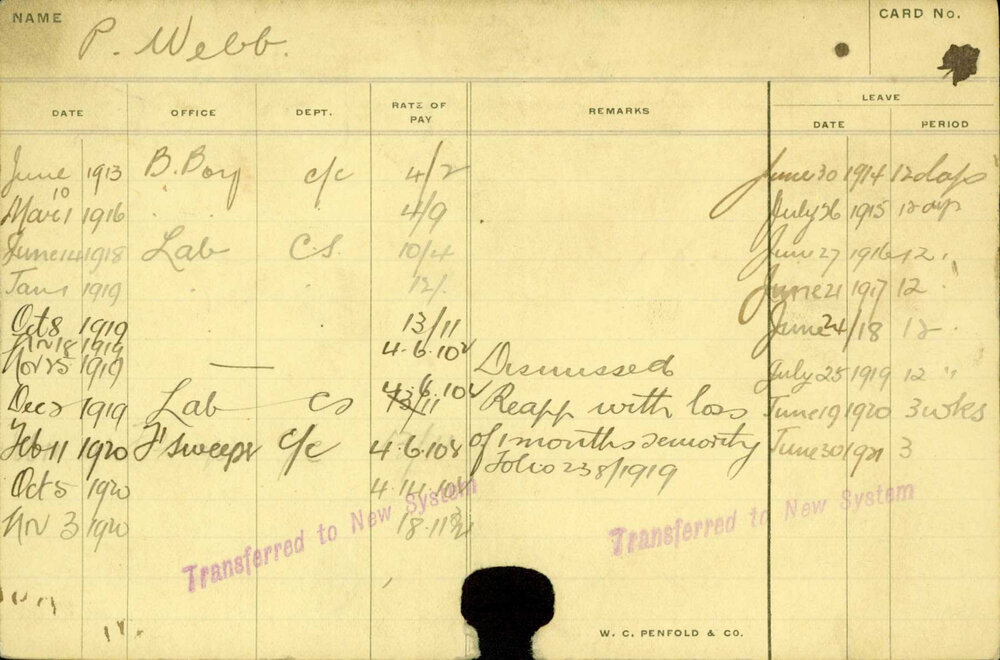 NAME P. Webb. CARD No.
LEAVE
DATE OFFICE DEPT. RATE OF PAY REMARKS DATE PERIOD
June 1913 B. Boy c/c 4/2 June 30 1914 12 days
10
Mar 1 1916 " " 4/9 July 26 1915 12 days
June 14 1918 Lab C.S. 10/4 June 27 1916 12 "
Jan 1 1919 " " 12/- June 21 1917 12 "
Oct 8 1919 13/11 June 24/18 12 "
Nov 18 1919 4.6.10½
Nov 25 1919 — Dismissed July 25 1919 12 "
4.6.10½
Dec 2 1919 Lab CS 13/11 Reapp with loss June 19 1920 3 wks
Feb 11 1920 F'sweeper c/c 4.6.10½ of 1 months seniority June 30 1921 3
Folio 238/1919
Oct 5 1920 4.14.10½
Nov 3 1920 18.11½
Transferred to New System
Transferred to New System
W. C. PENFOLD & CO.